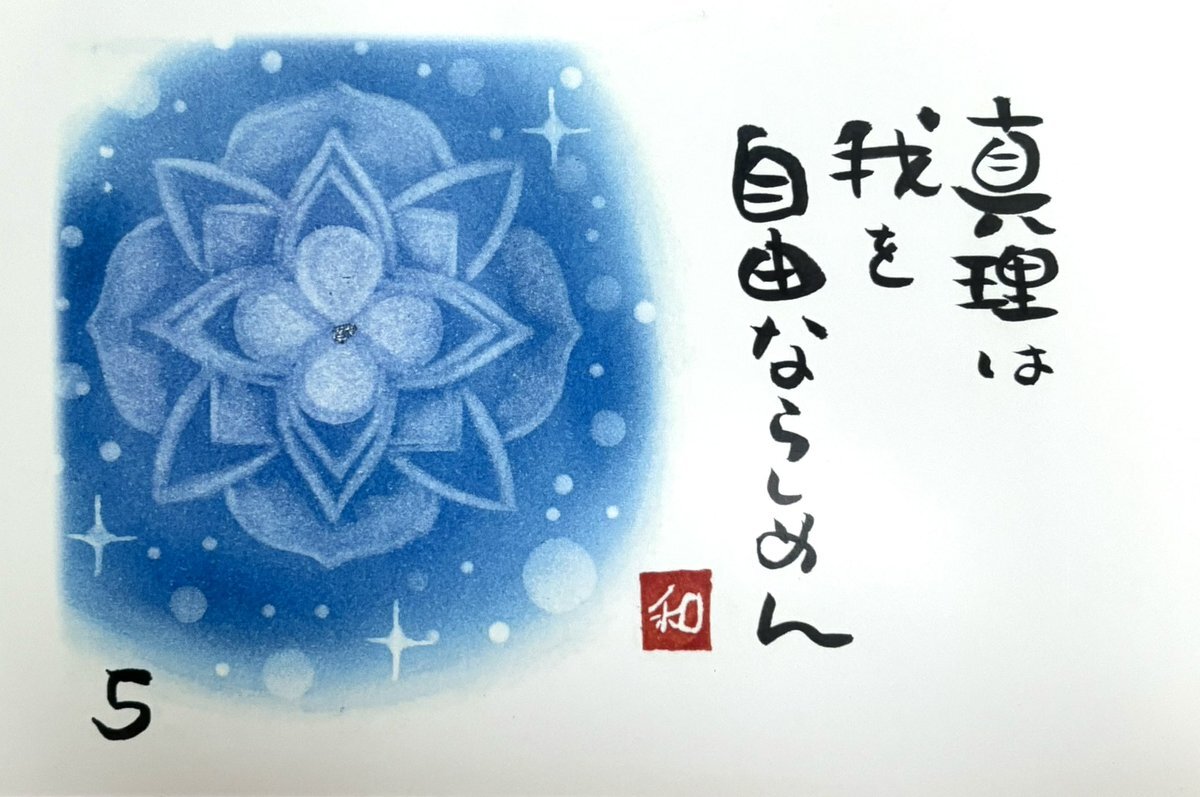 真理は
我を
自由ならしめん
和
5